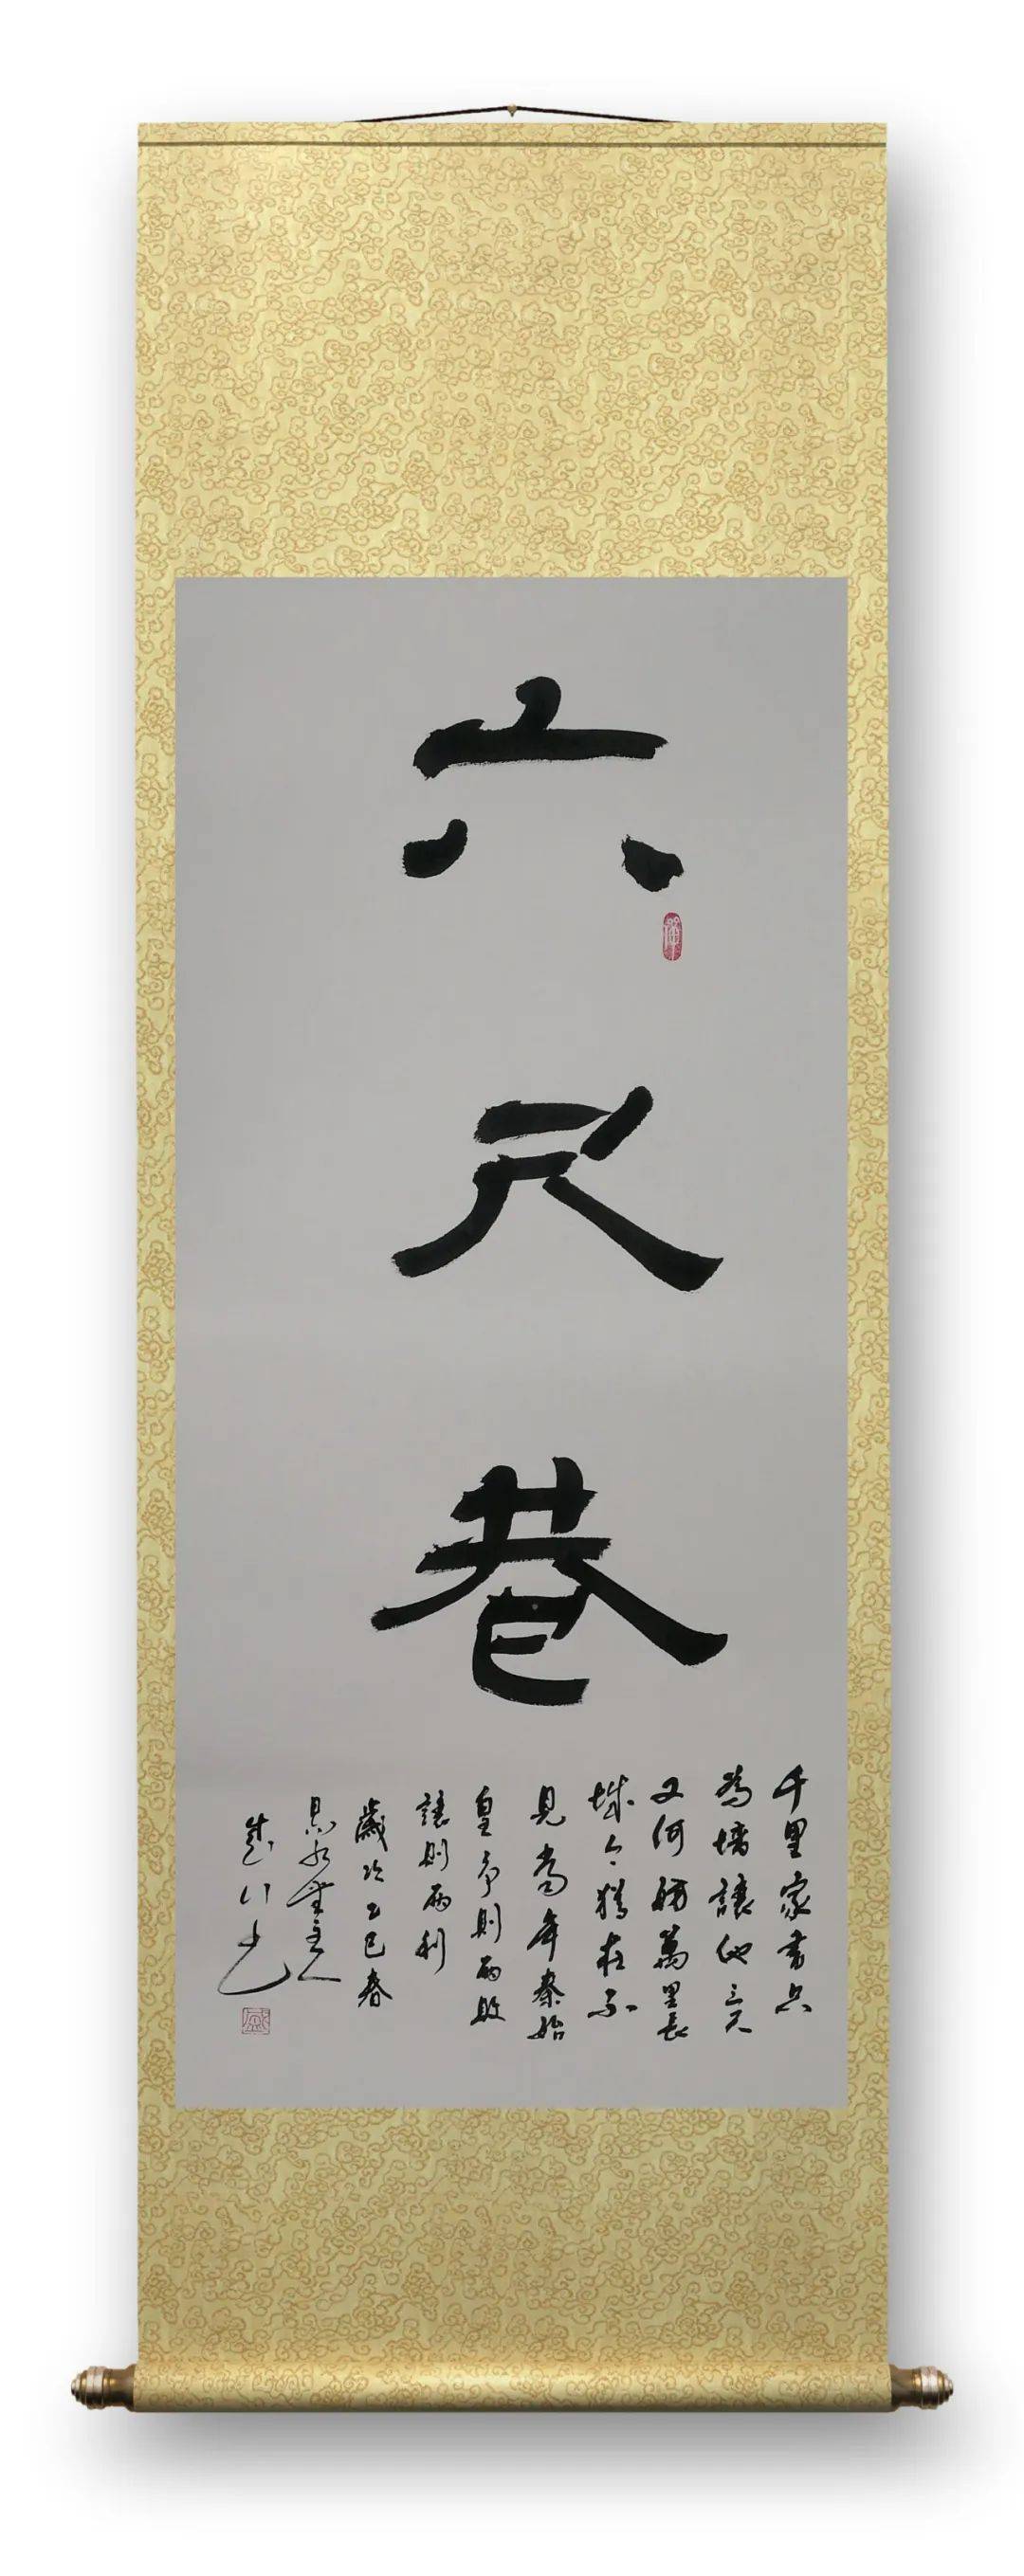 六尺巷
千里家書只
為墻讓他三尺
又何妨萬里長
城今猶在不
見當年秦始
皇爭則兩敗
讓則兩利
歲次乙巳春
主人